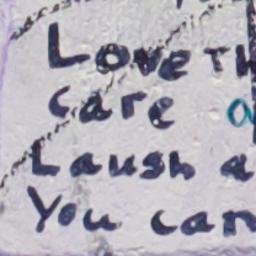 Love Th
care a
Laush a
You can